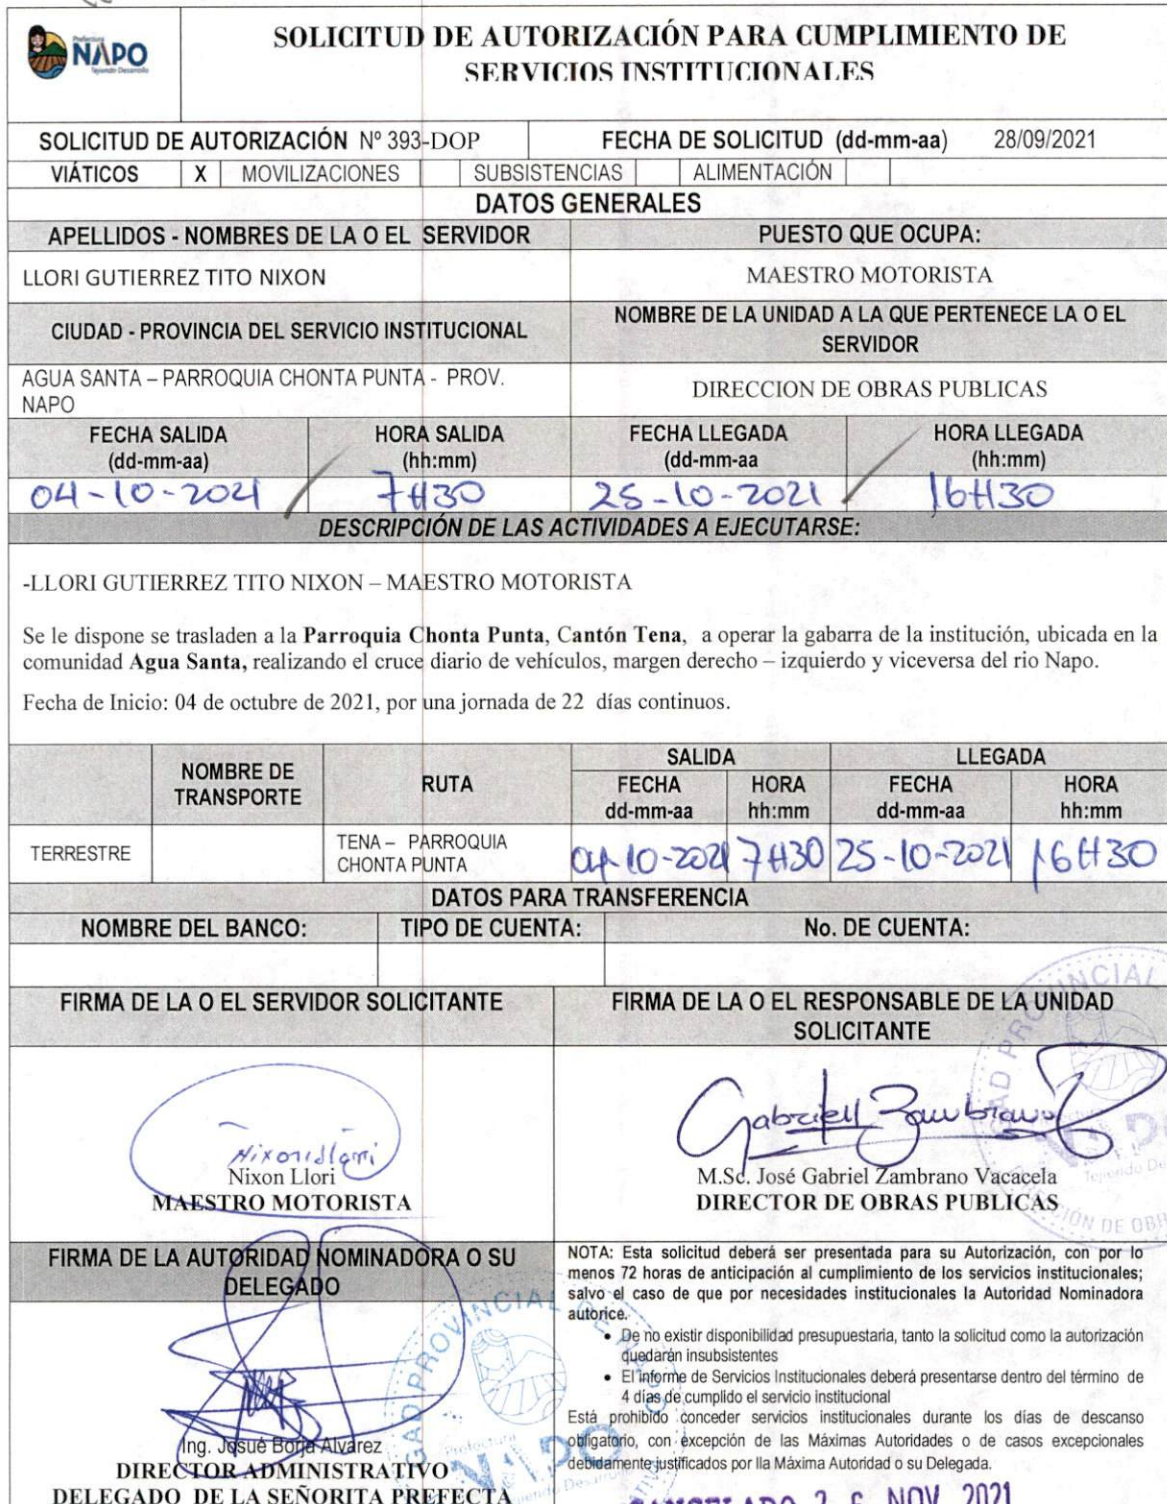 Prefectura
NAPO
Tejiendo Desarrollo
SOLICITUD DE AUTORIZACIÓN PARA CUMPLIMIENTO DE
SERVICIOS INSTITUCIONALES
SOLICITUD DE AUTORIZACIÓN Nº 393-DOP FECHA DE SOLICITUD (dd-mm-aa) 28/09/2021
VIÁTICOS X MOVILIZACIONES SUBSISTENCIAS ALIMENTACIÓN
DATOS GENERALES
APELLIDOS - NOMBRES DE LA O EL SERVIDOR PUESTO QUE OCUPA:
LLORI GUTIERREZ TITO NIXON MAESTRO MOTORISTA
CIUDAD - PROVINCIA DEL SERVICIO INSTITUCIONAL
NOMBRE DE LA UNIDAD A LA QUE PERTENECE LA O EL
SERVIDOR
AGUA SANTA – PARROQUIA CHONTA PUNTA - PROV.
NAPO
DIRECCION DE OBRAS PUBLICAS
FECHA SALIDA HORA SALIDA FECHA LLEGADA HORA LLEGADA
(dd-mm-aa) (hh:mm) (dd-mm-aa (hh:mm)
04-10-2021 7H30 25-10-2021 16H30
DESCRIPCIÓN DE LAS ACTIVIDADES A EJECUTARSE:
-LLORI GUTIERREZ TITO NIXON – MAESTRO MOTORISTA
Se le dispone se trasladen a la Parroquia Chonta Punta, Cantón Tena, a operar la gabarra de la institución, ubicada en la
comunidad Agua Santa, realizando el cruce diario de vehículos, margen derecho – izquierdo y viceversa del rio Napo.
Fecha de Inicio: 04 de octubre de 2021, por una jornada de 22 días continuos.
SALIDA LLEGADA
NOMBRE DE
TRANSPORTE
RUTA
FECHA HORA FECHA HORA
dd-mm-aa hh:mm dd-mm-aa hh:mm
TERRESTRE
TENA – PARROQUIA
CHONTA PUNTA
04-10-2021 7H30 25-10-2021 16H30
DATOS PARA TRANSFERENCIA
NOMBRE DEL BANCO: TIPO DE CUENTA: No. DE CUENTA:
FIRMA DE LA O EL SERVIDOR SOLICITANTE
FIRMA DE LA O EL RESPONSABLE DE LA UNIDAD
SOLICITANTE
Nixon Llori
Nixon Llori
MAESTRO MOTORISTA
Gabriell Zambrano
M.Sc. José Gabriel Zambrano Vacacela
DIRECTOR DE OBRAS PUBLICAS
FIRMA DE LA AUTORIDAD NOMINADORA O SU
DELEGADO
Ing. Josué Borja Alvarez
DIRECTOR ADMINISTRATIVO
DELEGADO DE LA SEÑORITA PREFECTA
GAD PROVINCIAL DE NAPO
NOTA: Esta solicitud deberá ser presentada para su Autorización, con por lo
menos 72 horas de anticipación al cumplimiento de los servicios institucionales;
salvo el caso de que por necesidades institucionales la Autoridad Nominadora
autorice.
• De no existir disponibilidad presupuestaria, tanto la solicitud como la autorización
quedarán insubsistentes
• El informe de Servicios Institucionales deberá presentarse dentro del término de
4 días de cumplido el servicio institucional
Está prohibido conceder servicios institucionales durante los días de descanso
obligatorio, con excepción de las Máximas Autoridades o de casos excepcionales
debidamente justificados por lla Máxima Autoridad o su Delegada.
CANCELADO 2 6 NOV 2021